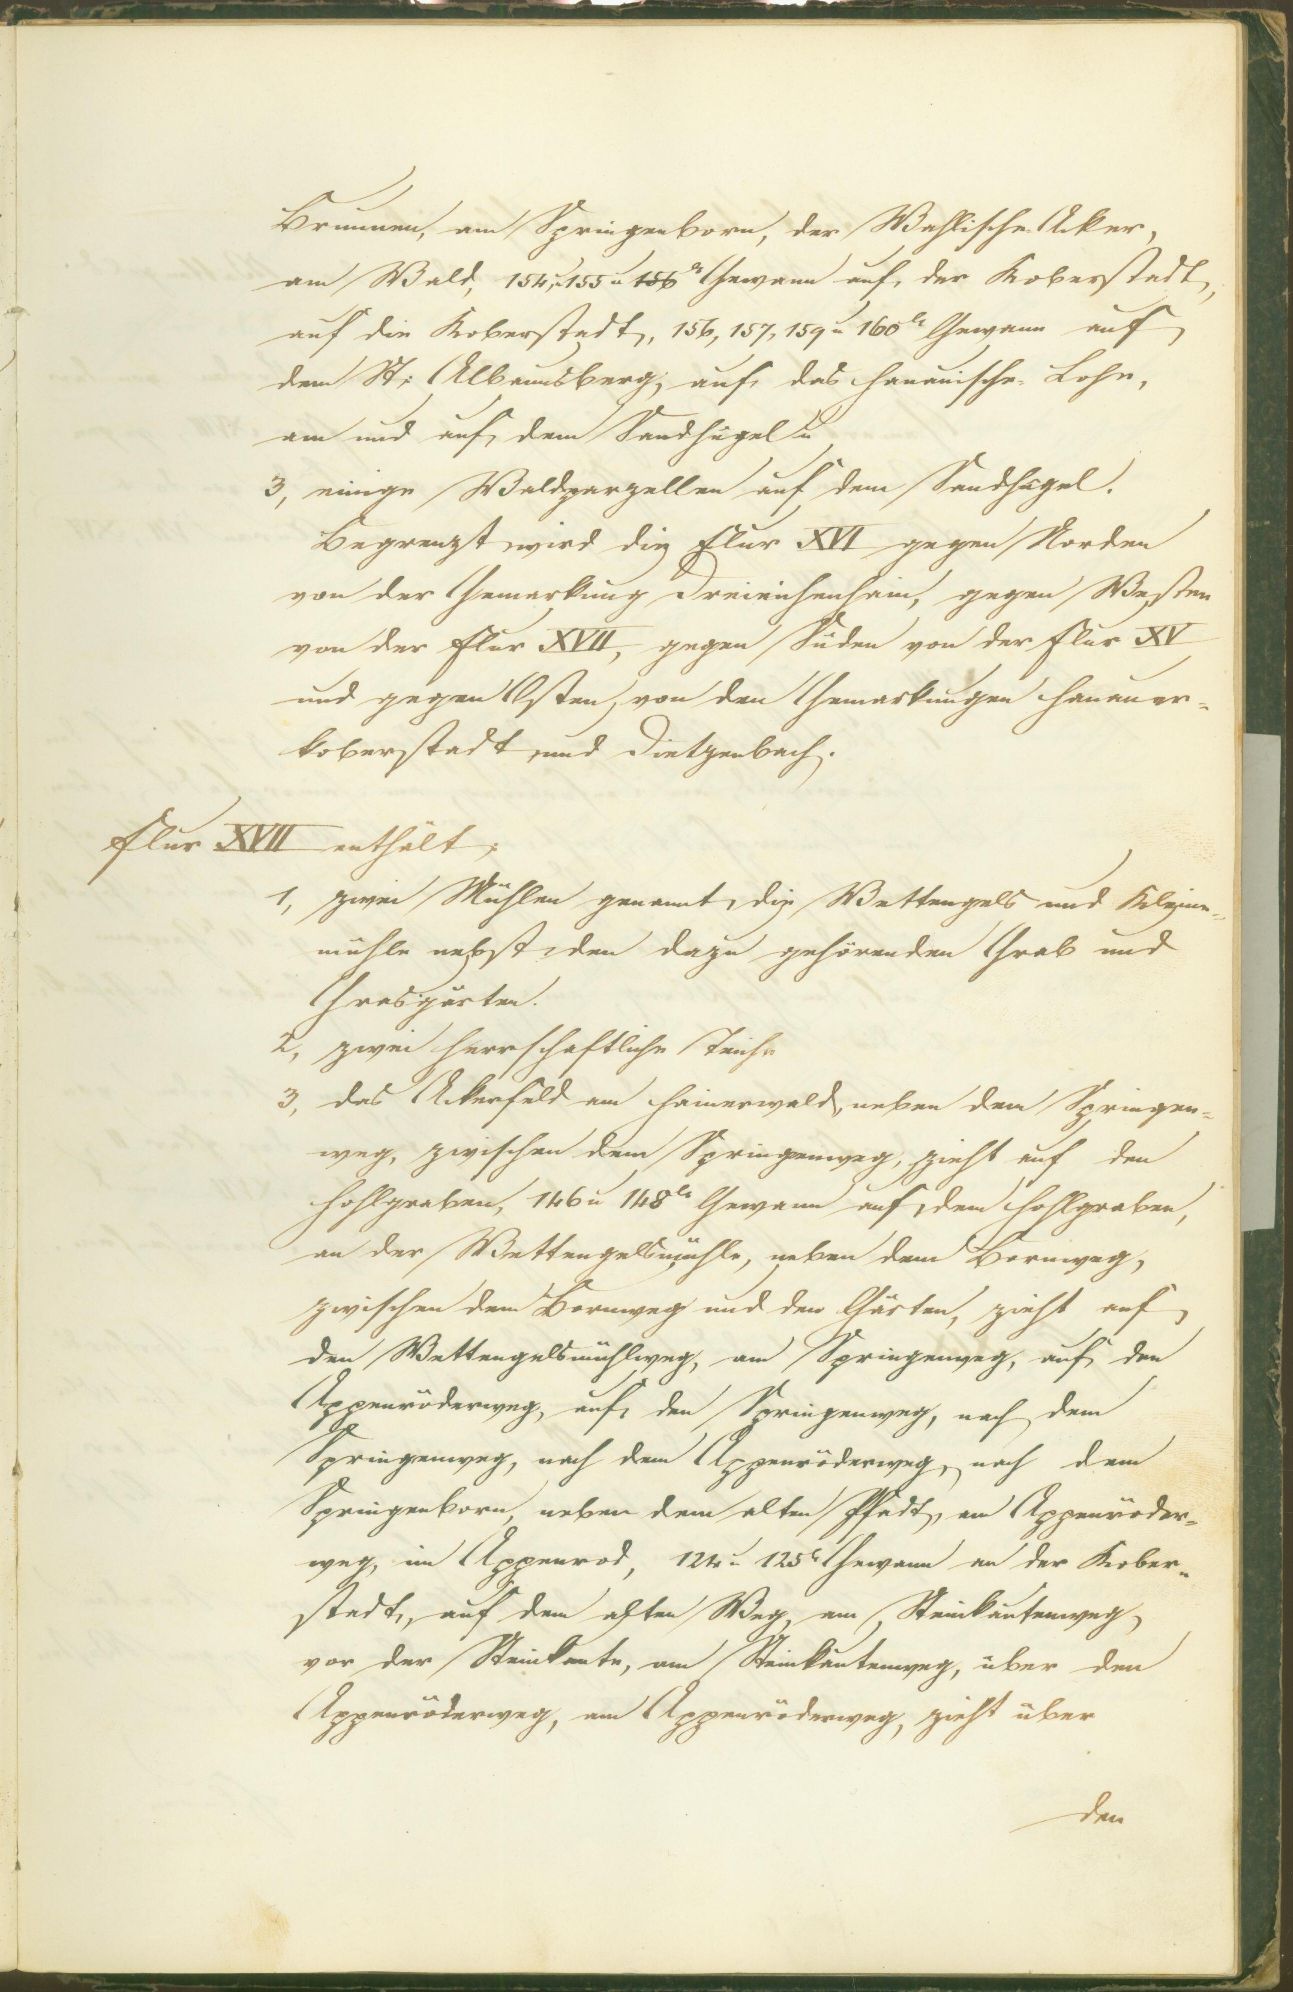 Brunnen, am Springenborn, der Wahlische Aker,
am Wald, 154, 155 u 156te Gewann auf der Koberstadt,
auf die Koberstadt, 156, 157, 159 u 160te Gewann auf
dem St: Albaunsberg, auf das Hanauische Lohe,
am und auf dem Sandhügel u
3, einige Waldparzellen auf dem Sandhügel.
Begrenzt wird die Flur XVI gegen Norden
von der Gemarkung Dreieichenhain, gegen Westen
von der Flur XVII, gegen Süden von der Flur XV
und gegen Osten, von den Gemarkungen Hanauer-
koberstadt und Dietzenbach.
Flur XVII enthält;
1, zwei Mühlen genannt, die Wettengels und Kleine-
mühle nebst den dazu gehörenden Grab und
Grasgärten.
2, zwei herrschaftliche Teiche
3, das Akerfeld am Hainerwald, neben dem Springen-
weg, zwischen dem Springenweg, zieht auf den
Hohlgraben, 146 u 148te Gewann auf dem Hohlgraben,
an der Wettengelsmühle, neben dem Bornweg,
zwischen dem Bornweg und den Gärten, zieht auf
den Wettengelsmühlweg, am Springenweg, auf den
Appenröderweg, auf den Springenweg, nach dem
Springenweg, nach dem Appenröderweg, nach dem
Springenborn, neben dem alten Pfadt, am Appenröder-
weg, im Appenrod, 124 u 125te Gewann an der Kober-
stadt, auf dem alten Weg, am Steinkautenweg,
vor der Steinkaute, am Steinkautenweg, über den
Appenröderweg, am Appenröderweg, zieht über
den